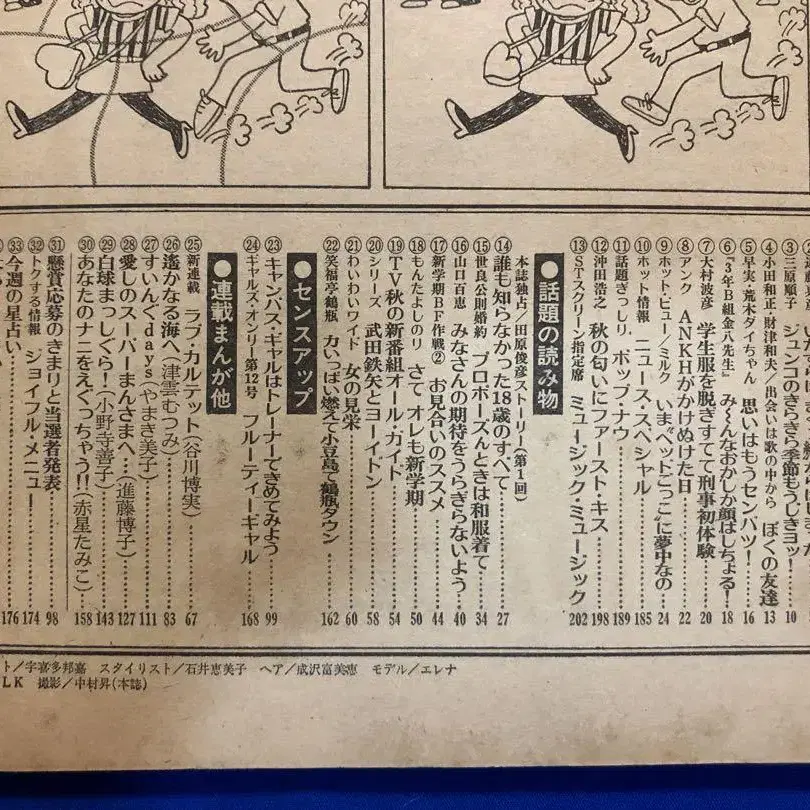 ③三原順子 ジュンコのきらきら季節もうじきヨッ!……10
④小田和正・財津和夫/出会いは歌の中から ぼくの友達……13
⑤早実・荒木ダイちゃん 思いはもうセンバツ!……16
⑥『3年B組金八先生』 み〜んなおかしか顔ばしちょる!……18
⑦大村波彦 学生服を脱ぎすてて刑事初体験……20
⑧アンク ANKHがかけぬけた日……22
⑨ホット・ビュー/ミルク いま〝ベッドごっこ〟に夢中なの……24
⑩ホット情報 ニュース・スペシャル……185
⑪話題ぎっしり ポップ・ナウ……189
⑫沖田浩之 秋の匂いにファースト・キス……198
⑬STスクリーン指定席 ミュージック・ミュージック……202
●話題の読み物
本誌独占/田原俊彦ストーリー(第1回)
⑭誰も知らなかった18歳のすべて……27
⑮世良公則婚約 プロポーズんときは和服着て……34
⑯山口百恵 みなさんの期待をうらぎらないよう……40
⑰新学期BF作戦② お見合いのススメ……44
⑱もんたよしのり さて オレも新学期……50
⑲TV秋の新番組オール・ガイド……54
⑳シリーズ 武田鉄矢とヨーイドン……58
㉑わいわいワイド 女の見栄……60
㉒笑福亭鶴瓶 力いっぱい燃えて小豆島で鶴瓶タウン……162
●センスアップ
㉓キャンパス・ギャルはトレーナーできめてみよう……99
㉔ギャルズ・オンリー第12号 フルーティーギャル……168
●連載まんが他
㉕新連載 ラブ・カルテット(谷川博実)……67
㉖遙かなる海へ(津雲むつみ)……83
㉗すいんぐdays(やまき美子)……111
㉘愛しのスーパーまんさまへ…(進藤博子)……127
㉙白球まっしぐら!(小野寺善子)……143
㉚あなたのナニをえぐっちゃう!!(赤星たみこ)……158
㉛懸賞応募のきまりと当選者発表……98
㉜トクする情報 ジョイフル・メニュー……174
㉝今週の星占い……176
ト/宇喜多邦嘉 スタイリスト/石井恵美子 ヘア/成沢富美恵 モデル/エレナ
LK 撮影/中村昇(本誌)